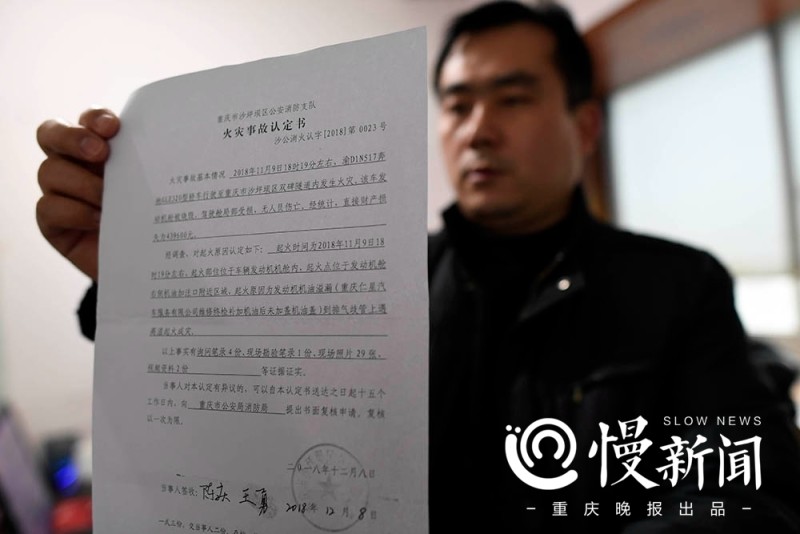 重庆市沙坪坝区公安消防支队
火灾事故认定书
沙公消火认字[2018]第0023号
火灾事故基本情况 2018年11月9日18时19分左右,渝D1N517奔
驰GLE320型轿车行驶至重庆市沙坪坝区双碑隧道内发生火灾。该车发
动机舱被烧毁,驾驶舱局部受损,无人员伤亡。经统计,直接财产损
失为439600元。
经调查,对起火原因认定如下: 起火时间为2018年11月9日18
时19分左右,起火部位位于车辆发动机舱内,起火点位于发动机舱
右侧机油加注口附近区域,起火原因为发动机机油溢漏(重庆仁星汽
车服务有限公司维修终检补加机油后未加盖机油盖)到排气歧管上遇
高温起火成灾。
以上事实有询问笔录4份、现场勘验笔录1份、现场照片29张、
视频资料2份 等证据证实。
当事人对本认定有异议的,可以自本认定书送达之日起十五个
工作日内,向 重庆市公安局消防局 提出书面复核申请。复核
以一次为限。
二〇一八年十二月八日
当事人签收: 陈庆 王勇 2018年12月8日
一式三份,交当事人二份,
SLOW NEWS
慢新闻
-重庆晚报出品-